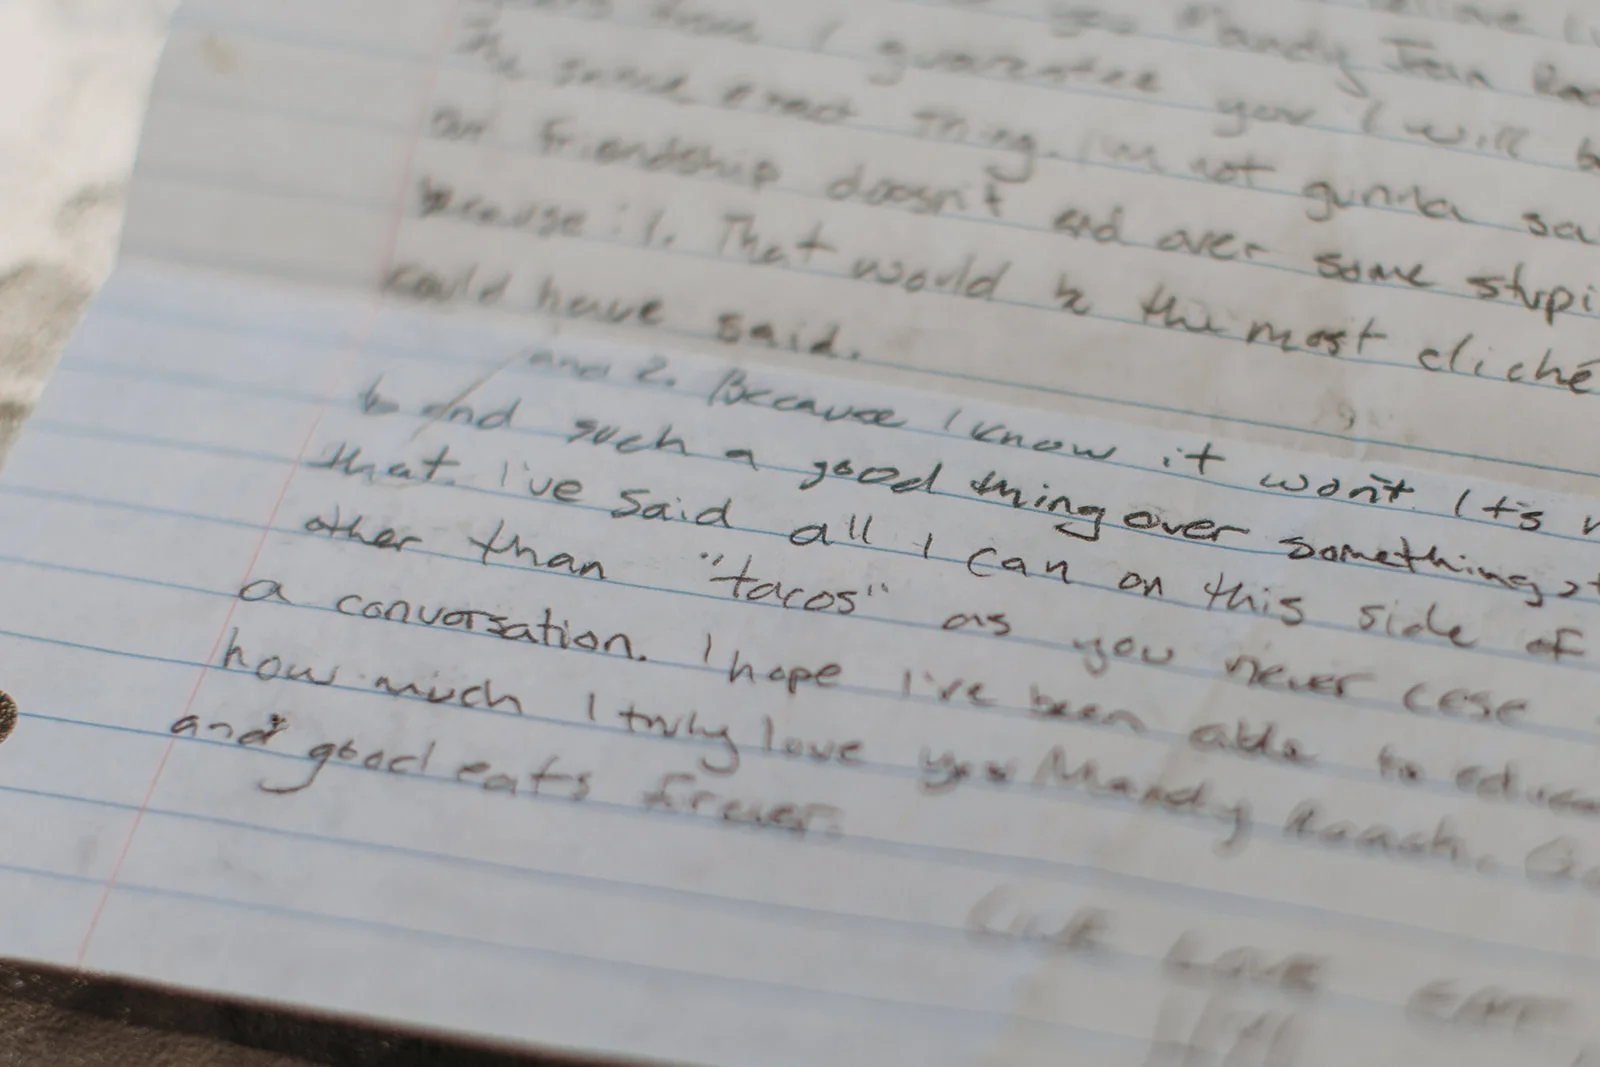 you Mandy Jean
I guarantee you I will
The same exact thing. I'm not gunna sa
our friendship doesn't end over some stupi
because: 1. That would be the most cliché
could have said.
and 2. Because I know it won't. It's
to end such a good thing over something
that. I've said all I can on this side of
other than "tacos" as you never cese
a conversation. I hope I've been able to educa
how much I truly love you Mandy Roach. Go
and good eats frever.
LIVE LOVE EAT